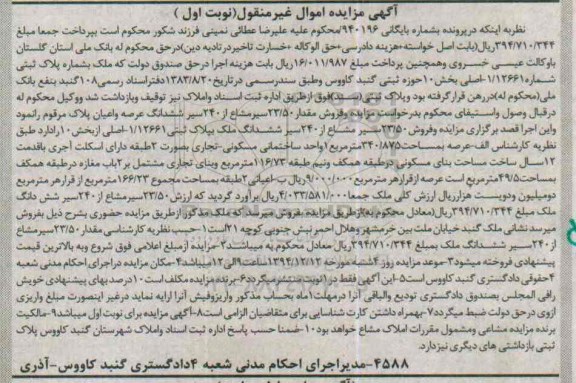 آگهی مزایده اموال غیرمنقول(نوبت اول )
نظربه اینکه درپرونده بشماره بایگانی ۹۴۰۱۹۶محکوم علیه علیرضا عطائی نمینی فرزند شکور محکوم است بپرداخت جمعا مبلغ
۳۹۴/۷۱۰/۳۴۴ریال(بابت اصل خواسته+هزینه دادرسی+حق الوکاله +خسارت تاخیردرتادیه دین)درحق محکوم له بانک ملی استان گلستان
باوکالت عیسی خسروی وهمچنین پرداخت مبلغ ۱۶/۰۱۱/۹۸۷ریال بابت هزینه اجرا درحق صندوق دولت که ملک بشماره پلاک ثبتی
شماره۱/۱۲۶۶۱-اصلی بخش۱۰حوزه ثبتی گنبد کاووس وطبق سندرسمی در تاریخ ۱۳۸۳/۸/۲۰دفتراسناد رسمی۱۰۸گنبد بنفع بانک
ملی(محکوم له)دررهن قرارگرفته بود وپلاک ثبتی فوق ازطریق اداره ثبت اسناد واملاک نیز توقیف وبازداشت شد ووکیل محکوم له
درقبال وصول واستیفای محکوم بدرخواست مزایده وفروش مقدار ۲۳/۵۰سیرمشاع از۲۴۰سیر ششدانگ عرصه واعیان پلاک مرقوم رانمود
واین اجرا قصد برگزاری مزایده وفروش ۲۳/۵۰سیر مشاع از۲۴۰سیر ششدانگ ملک بپلاک ثبتی ۱/۱۲۶۶۱-اصلی ازبخش۱۰رادارد طبق
نظریه کارشناس الف-عرصه بمساحت۳۴۰/۸۷۵مترمربع۱واحد ساختمانی مسکونی-تجاری بصورت ۲طبقه دارای اسکلت آجری باقدمت
۱۲سال ساخت مساحت بنای مسکونی درطبقه همکف ونیم طبقه ۱۱۶/۷۳مترمربع وبنای تجاری مشتمل بر۲باب مغازه درطبقه همکف
بمساحت۴۹/۵مترمربع است عرصه ازقرارهر مترمربع ۹/۰۰۰/۰۰۰ریال ب-اعیانی۲طبقه بمساحت مجموع ۱۶۶/۲۳مترمربع از قرارهر مترمربع
دومیلیون ودویست هزارریال ارزش کلی ملک جمعا۴/۰۳۳/۵۸۱/۰۰۰ریال برآورد گردید که ارزش ۲۳/۵۰سیرمشاع از۲۴۰سیر شش دانگ
ملک مبلغ ۳۹۴/۷۱۰/۳۴۴ریال(معادل محکوم به)ازطریق مزایده بفروش میرسد که ملک مذکور ازطریق مزایده حضوری بشرح ذیل بفروش
میرسد نشانی ملک گنبد خیابان ملت بین خرمشهر وهلال احمر نبش جنوبی کوچه ۲۱است۱-حسب نظریه کارشناسی مقدار ۲۳/۵۰سیرمشاع
از۲۴۰سیر ششدانگ ملک بمبلغ ۳۹۴/۷۱۰/۳۴۴ریال معادل محکوم به میباشد۲-مزایده ازمبلغ اعلامی فوق شروع وبه بالاترین قیمت
پیشنهادی فروخته میشود۳-موعد مزایده روز ۴شنبه مورخه ۱۳۹۴/۱۲/۱۲ساعت۹الی۱۲میباشد۴-مکان مزایده دراجرای احکام مدنی شعبه
۴حقوقی دادگستری گنبد کاووس است۵-این آگهی فقط دریک نوبت منتشر میگردد۶-برنده مزایده مکلف است ۱۰درصد بهای پیشنهادی خویش
رافی المجلس بصندوق دادگستری تودیع والباقی آنرا درمهلت۱ماه بحساب مذکور واریزوفیش آنرا ارایه نماید درغیر اینصورت مبلغ واریزی
ازوی درحق دولت ضبط میگردد۷-بهمراه داشتن کارت شناسایی برای متقاضیان الزامی است۸-آگهی مزایده برای نوبت اول میباشد۹-مالکیت
برنده مزایده مشاعی ومشمول مقررات املاک مشاع خواهد بود۱۰-ضمنا حسب پاسخ اداره ثبت اسناد واملاک شهرستان گنبد کاووس پلاک
ثبتی بازداشتی های دیگری نیزدارد.
۴۵۸۸-مدیراجرای احکام مدنی شعبه ۴دادگستری گنبد کاووس-آذری